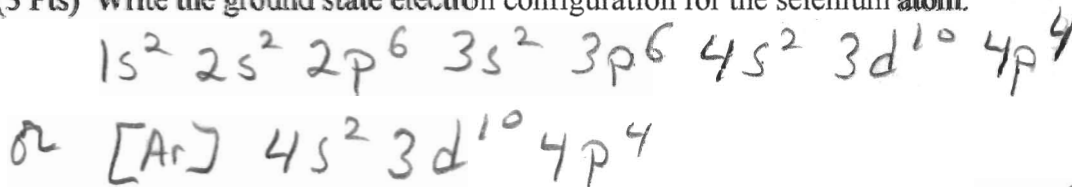 (3 Pts) Write the ground state electron configuration for the selenium atom.
1s² 2s² 2p⁶ 3s² 3p⁶ 4s² 3d¹⁰ 4p⁴
or [Ar] 4s² 3d¹⁰ 4p⁴